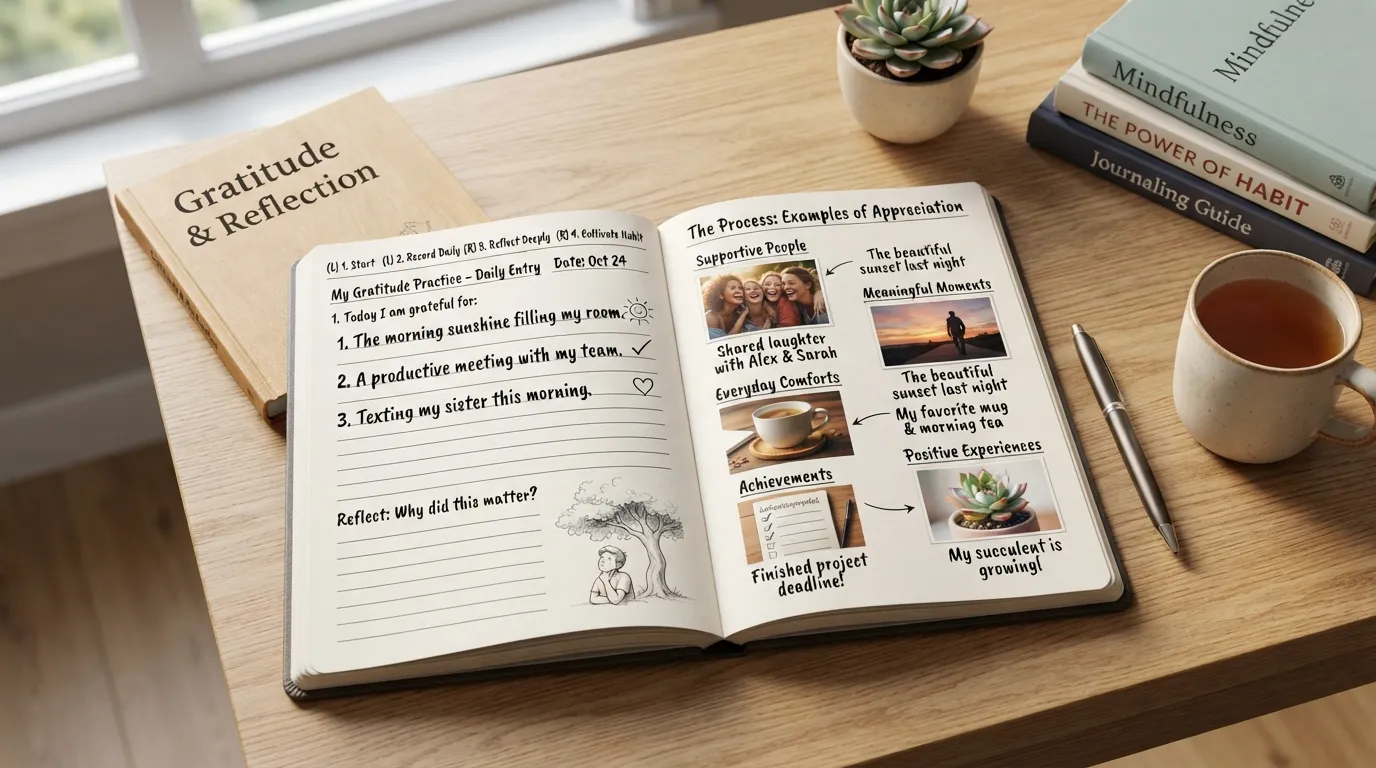 Gratitude
& Reflection
Mindfulness
Mindfulness
THE POWER OF HABIT
Journaling Guide
(L) 1. Start (L) 2. Record Daily (R) 3. Reflect Deeply (R) 4. Cultivate Habit
My Gratitude Practice – Daily Entry Date: Oct 24
1. Today I am grateful for:
1. The morning sunshine filling my room.
2. A productive meeting with my team.
3. Texting my sister this morning.
Reflect: Why did this matter?
The Process: Examples of Appreciation
Supportive People
Shared laughter
with Alex & Sarah
Everyday Comforts
Achievements
Finished project
deadline!
The beautiful
sunset last night
Meaningful Moments
The beautiful
sunset last night
My favorite mug
& morning tea
Positive Experiences
My succulent is
growing!